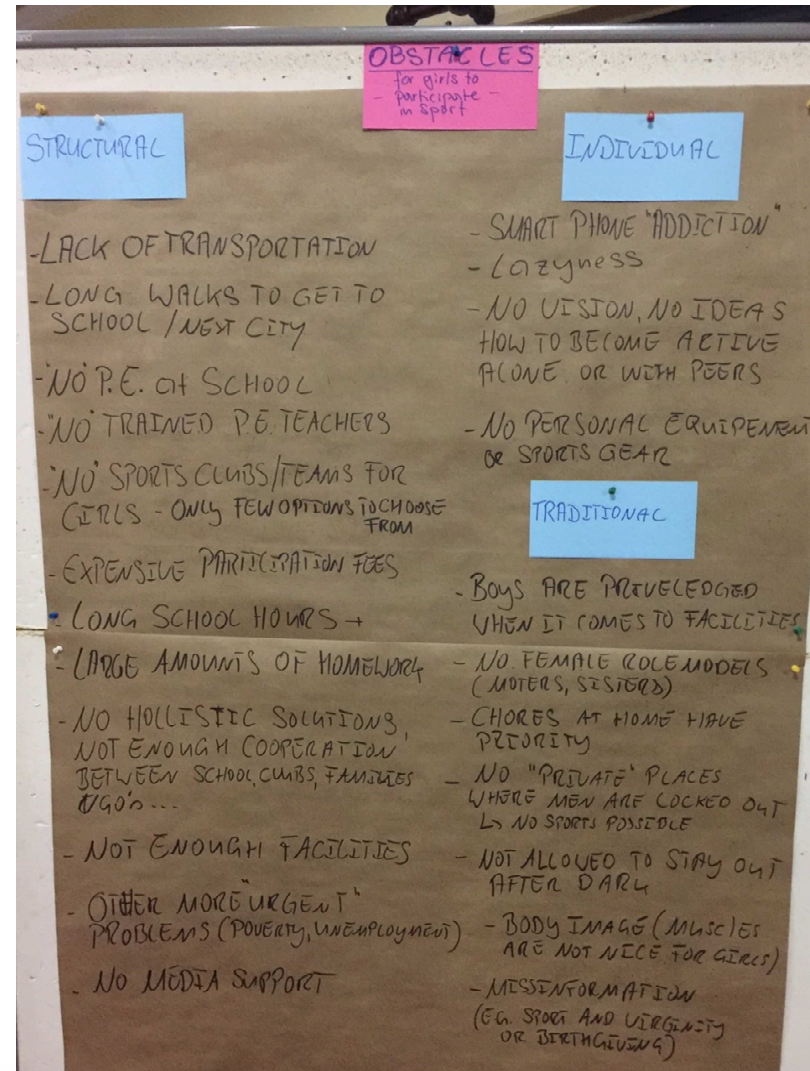 OBSTACLES
for girls to
- participate -
in Sport
STRUCTURAL
- LACK OF TRANSPORTATION
- LONG WALKS TO GET TO
SCHOOL / NEXT CITY
- "NO" P.E. at SCHOOL
- "NO" TRAINED P.E. TEACHERS
- "NO" SPORTS CLUBS/TEAMS FOR
GIRLS - ONLY FEW OPTIONS TO CHOOSE
FROM
- EXPENSIVE PARTICIPATION FEES
- LONG SCHOOL HOURS →
- LARGE AMOUNTS OF HOMEWORK
- NO HOLLISTIC SOLUTIONS,
NOT ENOUGH COOPERATION
BETWEEN SCHOOL, CLUBS, FAMILIES
NGO's ...
- NOT ENOUGH FACILITIES
- OTHER MORE "URGENT"
PROBLEMS (POVERTY, UNEMPLOYMENT)
- NO MEDIA SUPPORT
INDIVIDUAL
- SMART PHONE "ADDICTION"
- Lazyness
- NO VISION, NO IDEAS
HOW TO BECOME ACTIVE
ALONE OR WITH PEERS
- NO PERSONAL EQUIPEMENT
OR SPORTS GEAR
TRADITIONAL
- BOYS ARE PRIVELEDGED
WHEN IT COMES TO FACILITIES
- NO FEMALE ROLE MODELS
(MOTERS, SISTERS)
- CHORES AT HOME HAVE
PRIORITY
- NO "PRIVATE" PLACES
WHERE MEN ARE LOCKED OUT
↳ NO SPORTS POSSIBLE
- NOT ALLOWED TO STAY OUT
AFTER DARK
- BODY IMAGE (MUSCLES
ARE NOT NICE FOR GIRLS)
- MISSINFORMATION
(EG. SPORT AND VIRGINITY
OR BIRTHGIVING)